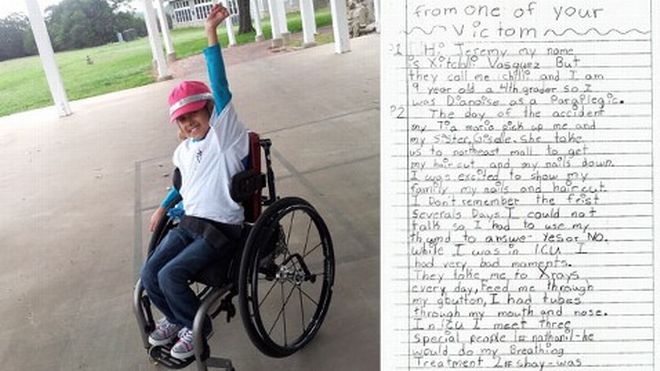 from one of your
Victom
1 Hi Jeremy my name
is Xitclali Vasquez But
they call me chilli and I am
9 year old a 4th grader so I
was Dianoise as a Paraplegic.
2 The day of the accident
my Tia maria pick up me and
my sister, Gisele. She take
us to northeast mall to get
my haircut and my nails down.
I was excited to show my
family my nails and haircut
I Don't remember the frist
Severals Days I could not
talk so I had to use my
thumd to answe- Yes or No.
while I was in ICU I
had very bad moments.
They take me to Xrays
every day, Feed me through
my gbutton, I had tubes
through my mouth and nose.
In ICU I meet three
special people 1# nathanil-he
would do my Breathing
Treatment 2# shay-was